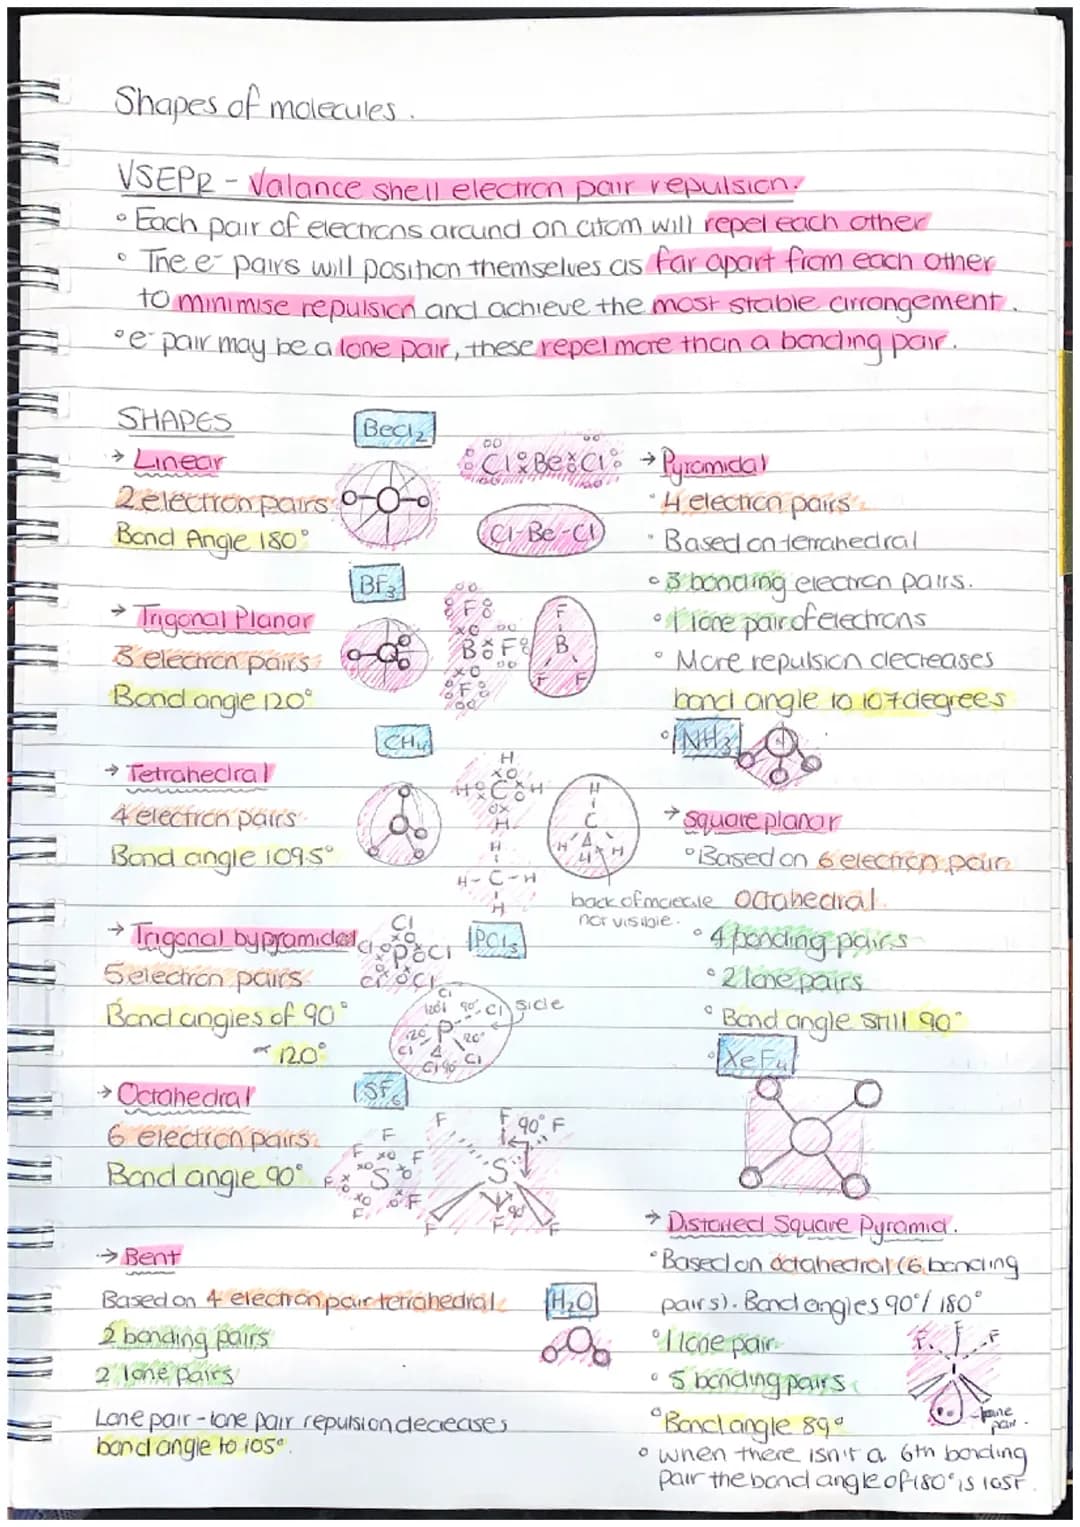 Shapes of molecules.
VSEPR - Valance shell electron pair repulsion.
° Each pair of electrons around an atom will repel each other
° The e⁻ pairs will position themselves as far apart from each other
to minimise repulsion and achieve the most stable arrangement.
° e⁻ pair may be a lone pair, these repel more than a bonding pair.
SHAPES
BeCl₂
→ Linear
2 electron pairs
Bond Angle 180°
Cl Be Cl
Cl-Be-Cl
BF₃
→ Trigonal Planar
3 electron pairs
Bond angle 120°
F
B F
F
F
B
F F
CH₄
→ Tetrahedral
4 electron pairs
Bond angle 109.5°
H
H C H
H
H
H-C-H
H
H
C
H H H
back of molecule
not visible.
→ Trigonal bypramidal
5 electron pairs
Bond angles of 90°
120°
PCl₅
Cl
Cl P Cl
Cl Cl
Cl
120° 90° Cl
120 P 120°
Cl Cl
Cl 90°
side
→ Octahedral
6 electron pairs
Bond angle 90°
SF₆
F
F F
F S
F F
F F 90° F
S
90°
F F F
→ Bent
Based on 4 electron pair tetrahedral
2 bonding pairs
2 lone pairs
H₂O
Lone pair - lone pair repulsion decreases
bond angle to 105°.
→ Pyramidal
° 4 electron pairs
° Based on tetrahedral
° 3 bonding electron pairs.
° 1 lone pair of electrons
° More repulsion decreases
bond angle to 107 degrees
° NH₃
→ square planar
° Based on 6 electron pair
octahedral
° 4 bonding pairs
° 2 lone pairs
° Bond angle still 90°
° XeF₄
→ Distorted Square Pyramid.
° Based on octahedral (6 bonding
pairs). Bond angles 90°/ 180°
° 1 lone pair
° 5 bonding pairs
° Bond angle 89°
F F F
lone
pair.
° when there isn't a 6th bonding
pair the bond angle of 180° is lost.